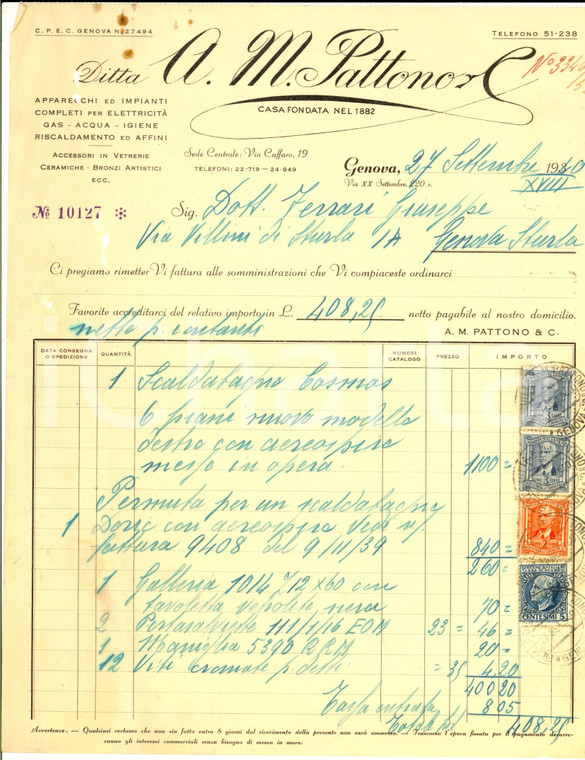 C. P. E. C. GENOVA N. 27494
TELEFONO 51-238
Ditta A. M. Pattono & C
CASA FONDATA NEL 1882
APPARECCHI ED IMPIANTI
COMPLETI PER ELETTRICITÀ
GAS - ACQUA - IGIENE
RISCALDAMENTO ED AFFINI
ACCESSORI IN VETRERIE
CERAMICHE - BRONZI ARTISTICI
ECC.
Sede Centrale: Via Caffaro, 19
TELEFONI: 22-719 — 24-949
Genova, 27 Settembre 1940
XVIII
Via XX Settembre, 220 r.
No 10127 *
Sig. Dott. Ferrari Giuseppe
Via Villini di Sturla 1A Genova Sturla
Ci pregiamo rimetter Vi fattura alle somministrazioni che Vi compiaceste ordinarci
Favorite accreditarci del relativo importo in L. 408,25 netto pagabile al nostro domicilio.
netto p. contanti
A. M. PATTONO & C.
DATA CONSEGNA O SPEDIZIONE QUANTITÀ NUMERI CATALOGO PREZZO IMPORTO
1 Scaldabagno Cosmos
6 piani nuovo modello
destro con aereospira
messo in opera. 1100 =
Permuta per un scaldabagno
1 Doric con aereospira Vedi n/
fattura 9408 del 9/11/39 840 =
260 =
1 Galleria 1014 712 x 60 con
nera 70 =
2 Portasalviette 111/1/16 23 = 46 =
1 Maniglia 5390 20 =
12 Viti cromate p. detti = 35 4.20
400 20
Tassa entrata 8 05
408,25
CENTESIMI 5
Avvertenze. — Qualsiasi reclamo che non sia fatto entro 8 giorni dal ricevimento della presente non sarà ammesso. — Trascorsa l'epoca fissata per il pagamento decorreranno gli interessi commerciali senza bisogno di messa in mora.